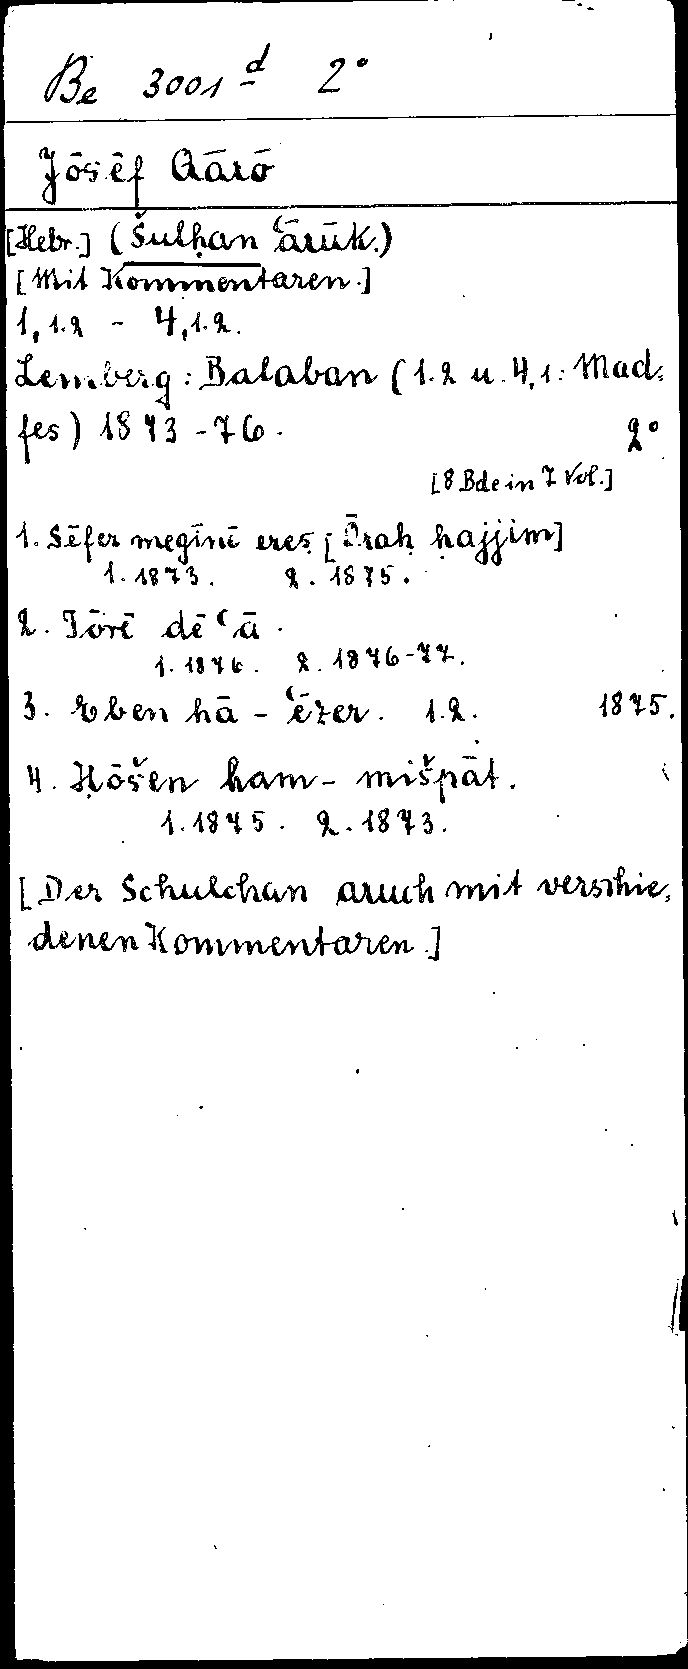 Be 3001 d 2°
Jōsēf Qārō
[Hebr.] (Šulḥan ʿārūk.)
[Mit Kommentaren.]
1,1.2 - 4,1.2.
Lemberg: Balaban (1.2 u. 4,1: Mad-
fes) 1873-76. 2°
[8 Bde in 7 Vol.]
1. Sēfer megīnē ereṣ [Ōraḥ ḥajjim]
1. 1873. 2. 1875.
2. Jōrē dēʿā.
1. 1876. 2. 1876-77.
3. Eben hā-ʿēzer. 1.2. 1875.
4. Ḥōšen ham-mišpāt.
1. 1875. 2. 1873.
[Der Schulchan aruch mit verschie-
denen Kommentaren.]